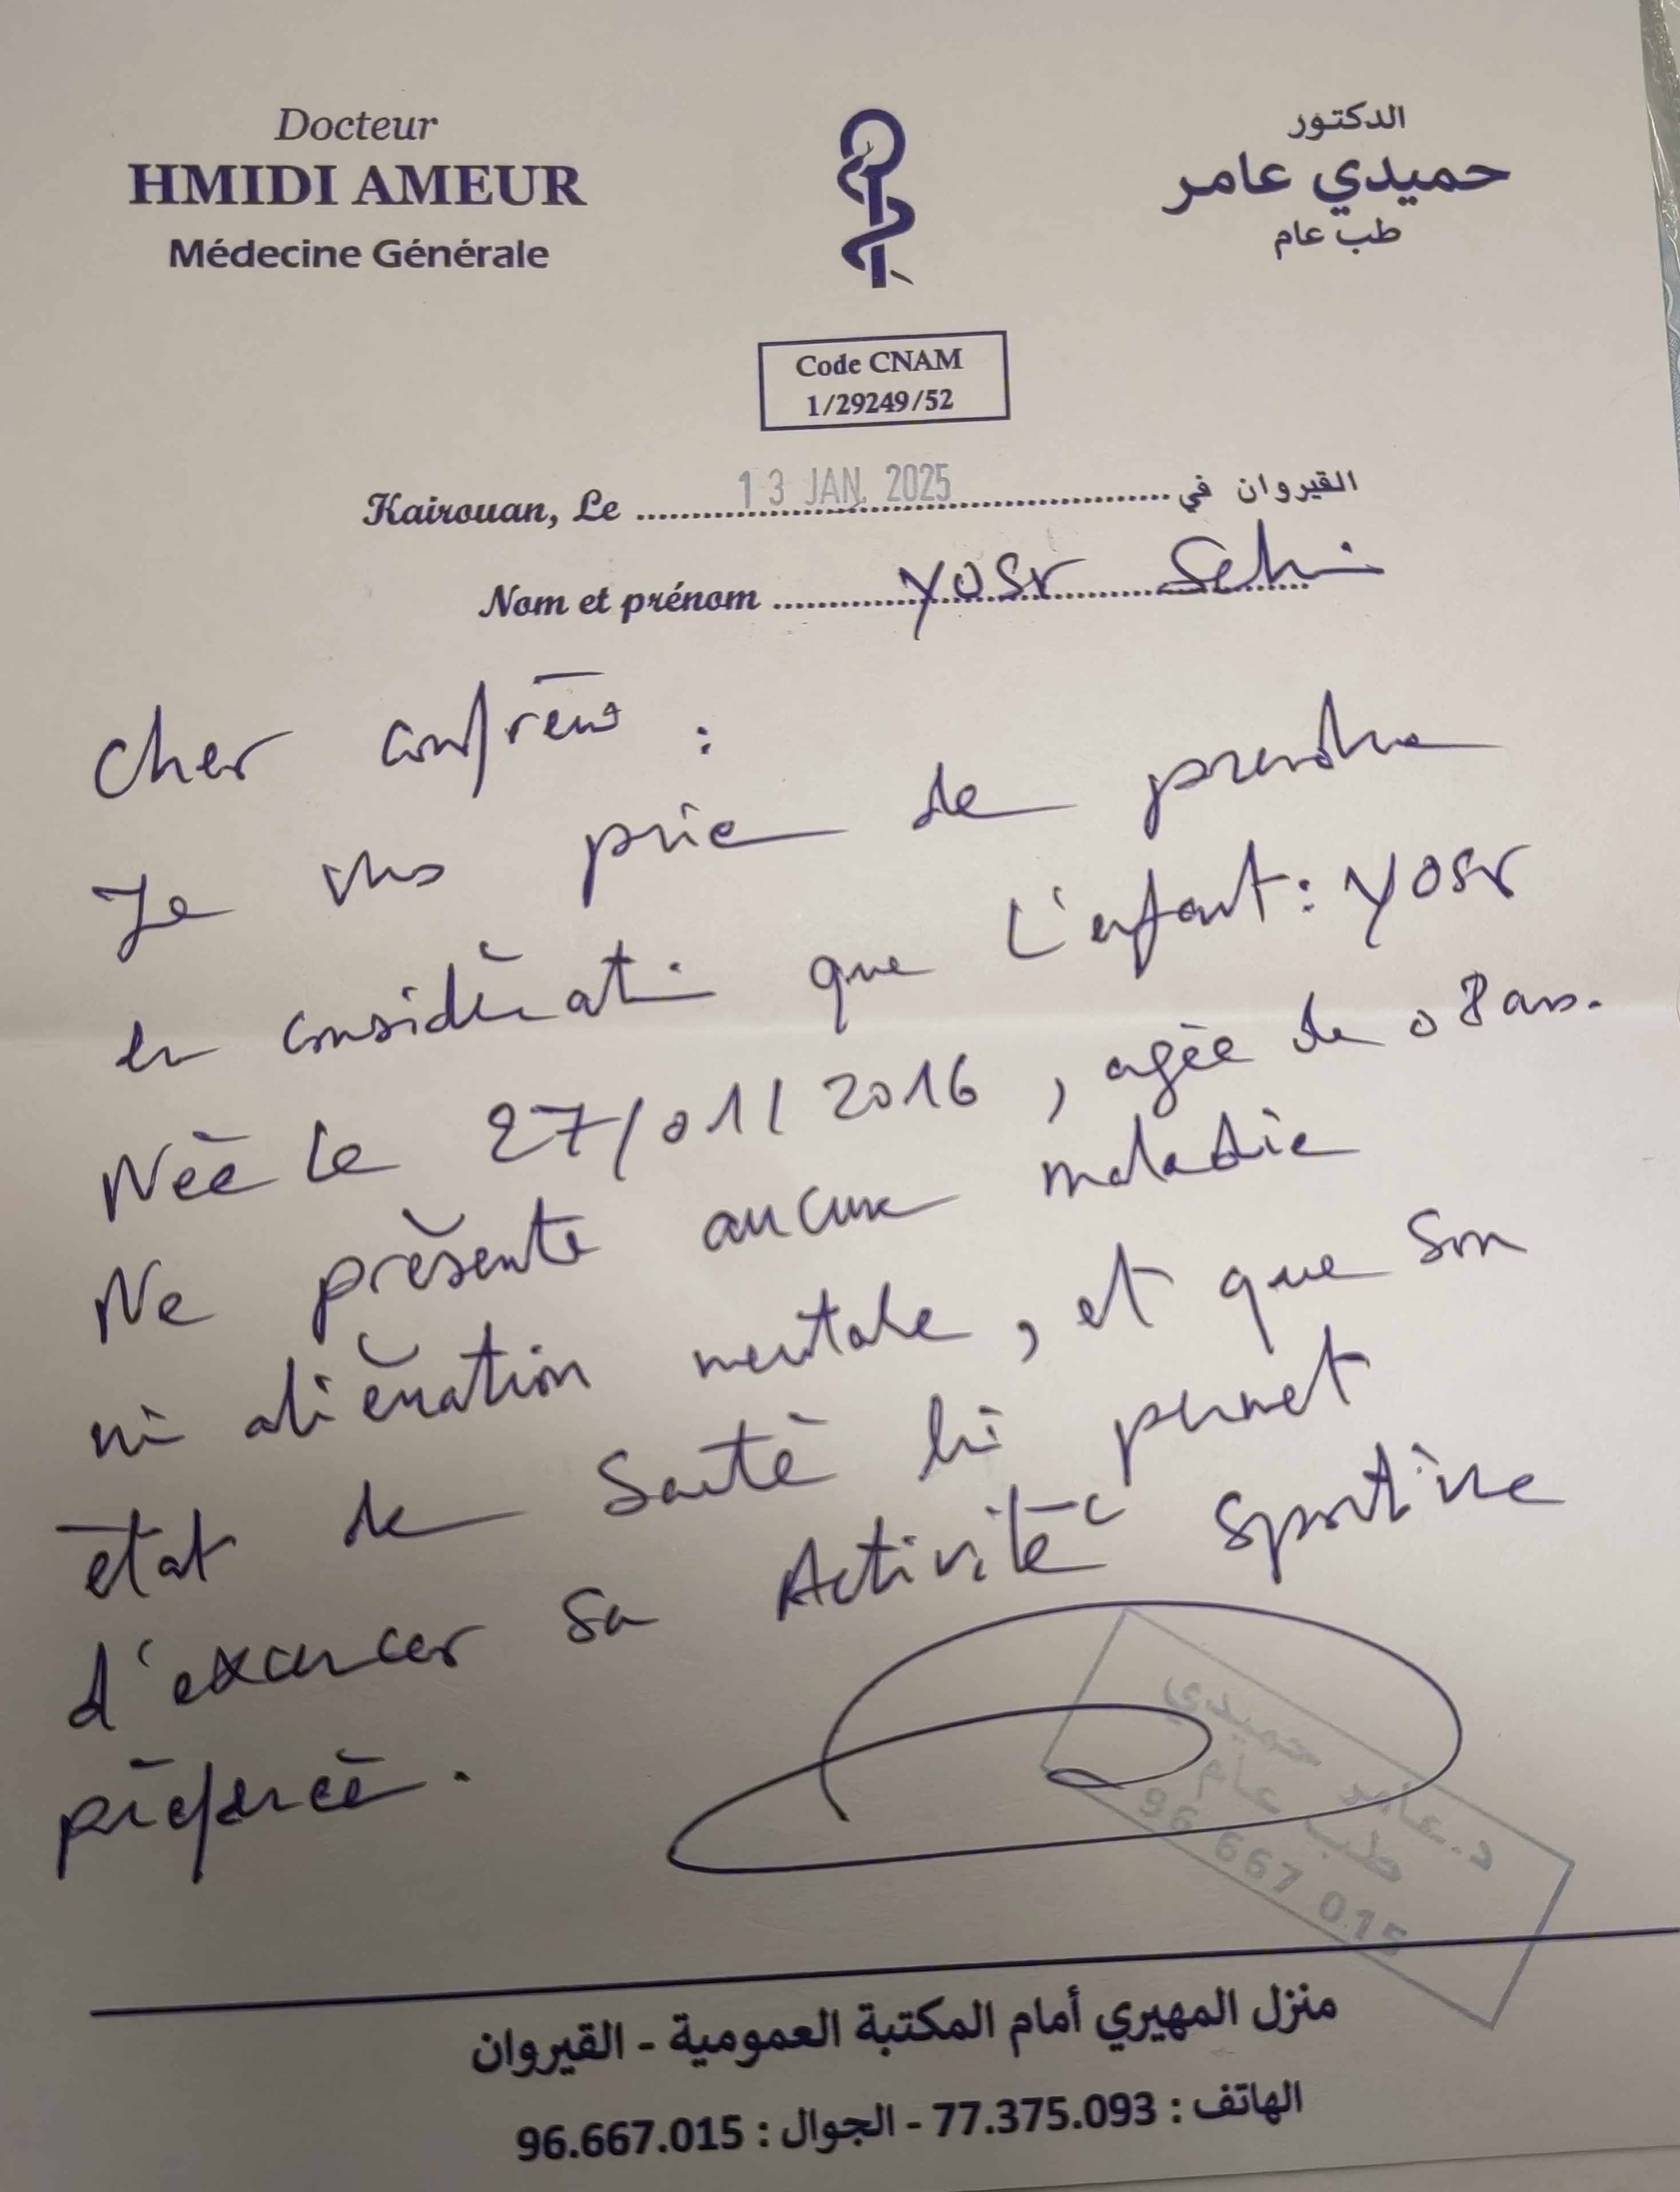 Docteur
HMIDI AMEUR
Médecine Générale
الدكتور
حميدي عامر
طب عام
Code CNAM
1/29249/52
Kairouan, Le 13 JAN. 2025 القيروان في
Nom et prénom Yosr
Cher confrère :
Je vous prie de prendre
en considération que l'enfant : Yosr
Née le 27/01/2016, agée de 08 ans.
Ne présente aucune maladie
ni aliénation mentale, et que son
état de santé lui permet
d'exercer sa Activité sportive
préférée.
د.عامر حميدي
طب عام
96 667 015
منزل المهيري أمام المكتبة العمومية - القيروان
الهاتف : 77.375.093 - الجوال : 96.667.015